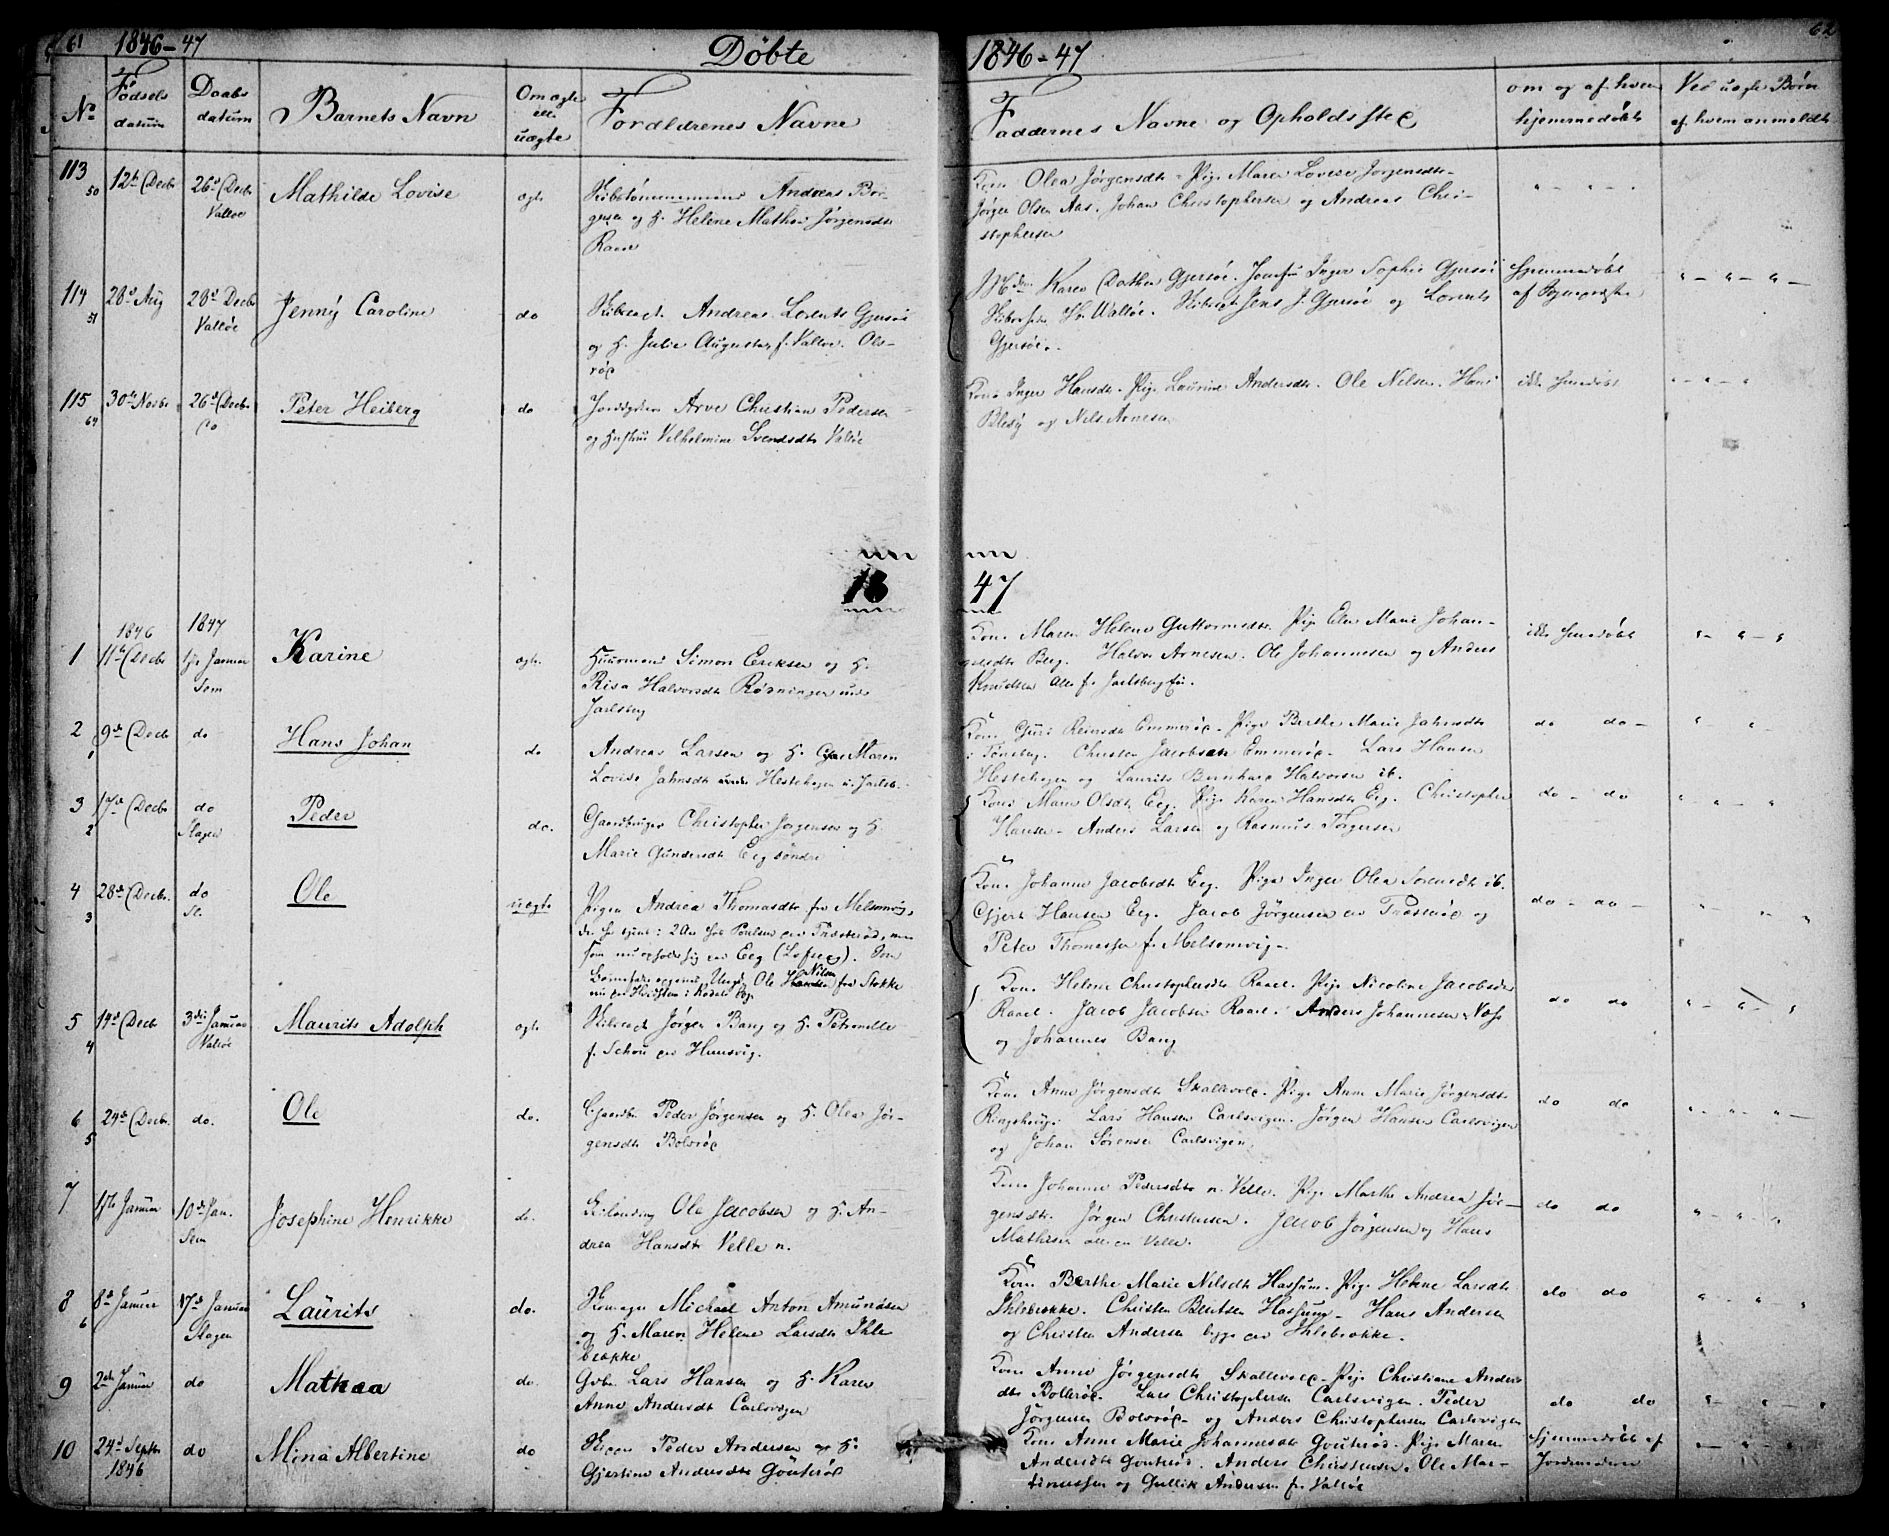 61 1846-47 Döbte 1846-47 62
No Födsels datum Daabs datum Barnets Navn Om ægte ell. uægte Forældrenes Navne Faddernes Navne og Opholdssted om og af hvem hjemmedöbt Ved uægte Börn af hvem anmeldt
113 50 12te Decbr 26de Decbr Valløe Mathilde Lovise ægte
Skibstømmermand Andreas Bør-
gesen og H. Helene Mathea Jørgensdtr
Raae
Kone Olea Jørgensdtr. Pige Maren Lovise Jørgensdtr.
Jørgen Olsen Aas. Johan Christophersen og Andreas Chri-
stophersen
114 51 28de Aug 28de Decbr Valløe Jenny Caroline do
Skibscapt. Andreas Lorents Gjersøe
og H. Julie Augusta, f. Walløe. Ols-
rød
Karen Dothea Gjersøe. Jomfru Inger Sophie Gjersøe
Hr. Walløe. Skibscapt Jens J. Gjersøe og Lorents
Gjersøe.
hjemmedöbt
af Sognepræsten
115 64 30te Novbr 26de Decbr do Peter Heiberg do
Arve Christian Pedersen
og Hustrue Vilhelmine Svendsdtr Valøe
Kone Inger Hansdtr. Pige Laurine Andersdtr. Ole Nilsen. Hans
og Nils Arnesen
ikke hjmedöbt
18 47
1 1846 11te Decbr 1847 1ste Januar Sem Karine ægte
Huusmand Simon Eriksen og H.
Risa Halvorsdtr Rødningen under
Jarlsberg
Kone Maren Helene Guttormsdtr. Pige Elen Marie Johan-
nesdtr Berg. Halvor Arnesen. Ole Johannesen og Anders
Knudsen alle f. Jarlsberg Ei.
ikke hjmedöbt
2 1 9de Decbr do Hans Johan do
Andreas Larsen og H. Maren
Lovise Jahnsdtr under Hestehagen u. Jarlsb.
Kone Guri Reiersdtr Emmerød. Pige Berthe Marie Jahnsdtr
i Tønsberg. Christen Jacobsen Emmerød. Lars Hansen
Hestehagen og Laurits Bernhard Halvorsen ib.
do do
3 2 17de Decbr do Slagen Peder do.
Gaardbruger Christopher Jørgensen og H.
Marie Gundersdtr Eeg søndre
Kone Maren Olsdtr Eeg. Pige Karen Hansdtr Eeg. Christopher
Hansen. Anders Larsen og Rasmus Torgersen
do do
4 3 28de Decbr. do Sl. Ole uægte
Pigen Andrea Thomasdtr fra Melsomvig,
der har tjent i 2 Aar hos Poulsen paa Træsterød, men
som nu opholder sig paa Eeg (Lofteeg). Som
Barnefader opgives Ungk. Ole Nilsen fra Stokke
Kone Johanne Jacobsdtr Eeg. Pige Inger Olea Sørensdtr ib.
Gjert Hansen Eeg. Jacob Jørgensen paa Træsterød og
Peter Thomassen f. Melsomvig.
do do
5 4 14de Decbr 3die Januar Valløe Maurits Adolph ægte
Skibscapt Jørgen Bang og H. Petronelle
f. Schou paa Huusvig.
Kone Helene Christophersdtr Raael. Pige Nicoline Jacobsdtr
Raael. Jacob Jacobsen Raael. Anders Johannesen Næs
og Johannes Bang
do do
6 5 24de Decbr. do. Ole do.
Gaardbr Peder Jørgensen og H. Olea Jør-
gensdtr Bolerød
Kone Anne Jørgensdtr Skallevold. Pige Anne Marie Jørgensdtr
Ringshoug. Lars Hansen Carlsvigen. Jørgen Hansen Carlsvigen
og Johan Sørensen Carlsvigen.
do do
7 1ste Januar 10de Jan. Sem Josephine Henrikke do.
Ole Jacobsen og H. An-
drea Hansdtr Velle n.
Kone Johanne Pedersdtr n. Velle. Pige Marthe Andrea Jør-
gensdtr. Jørgen Christensen. Jacob Jørgensen og Hans
Mathisen alle paa Velle.
do do
8 6 8de Januar 17de Januar Slagen Laurits do.
Michael Anton Amundsen
og H. Maren Helene Larsdtr Ihle
brække
Kone Berthe Marie Nilsdtr Hassum. Pige Helene Larsdtr
Ihlebrække. Christen Bentsen Hassum. Hans Andersen
og Christen Andersen begge paa Ihlebrække.
do do
9 2den Januar do Mathea do.
Gdbr. Lars Hansen og H. Karen
Anne Andersdtr Carlsvigen
Kone Anne Jørgensdtr Skallevold. Pige Christiane Anders
dtr Bollerød. Lars Christophersen Carlsvigen. Peder
Jørgensen Bolerød og Anders Christophersen Carlsvigen
do do
10 24de Septbr 1846 do Mina Albertine do
Peder Andersen og H.
Gjertine Andersdtr Gouterød
Kone Anne Marie Johannesdtr Gouterød. Pige Maren
Andersdtr Gouterød. Anders Christensen. Ole Mar-
tinussen og Gullik Andersen fr. Valløe
hjemmedöbt af
Jordemoderen